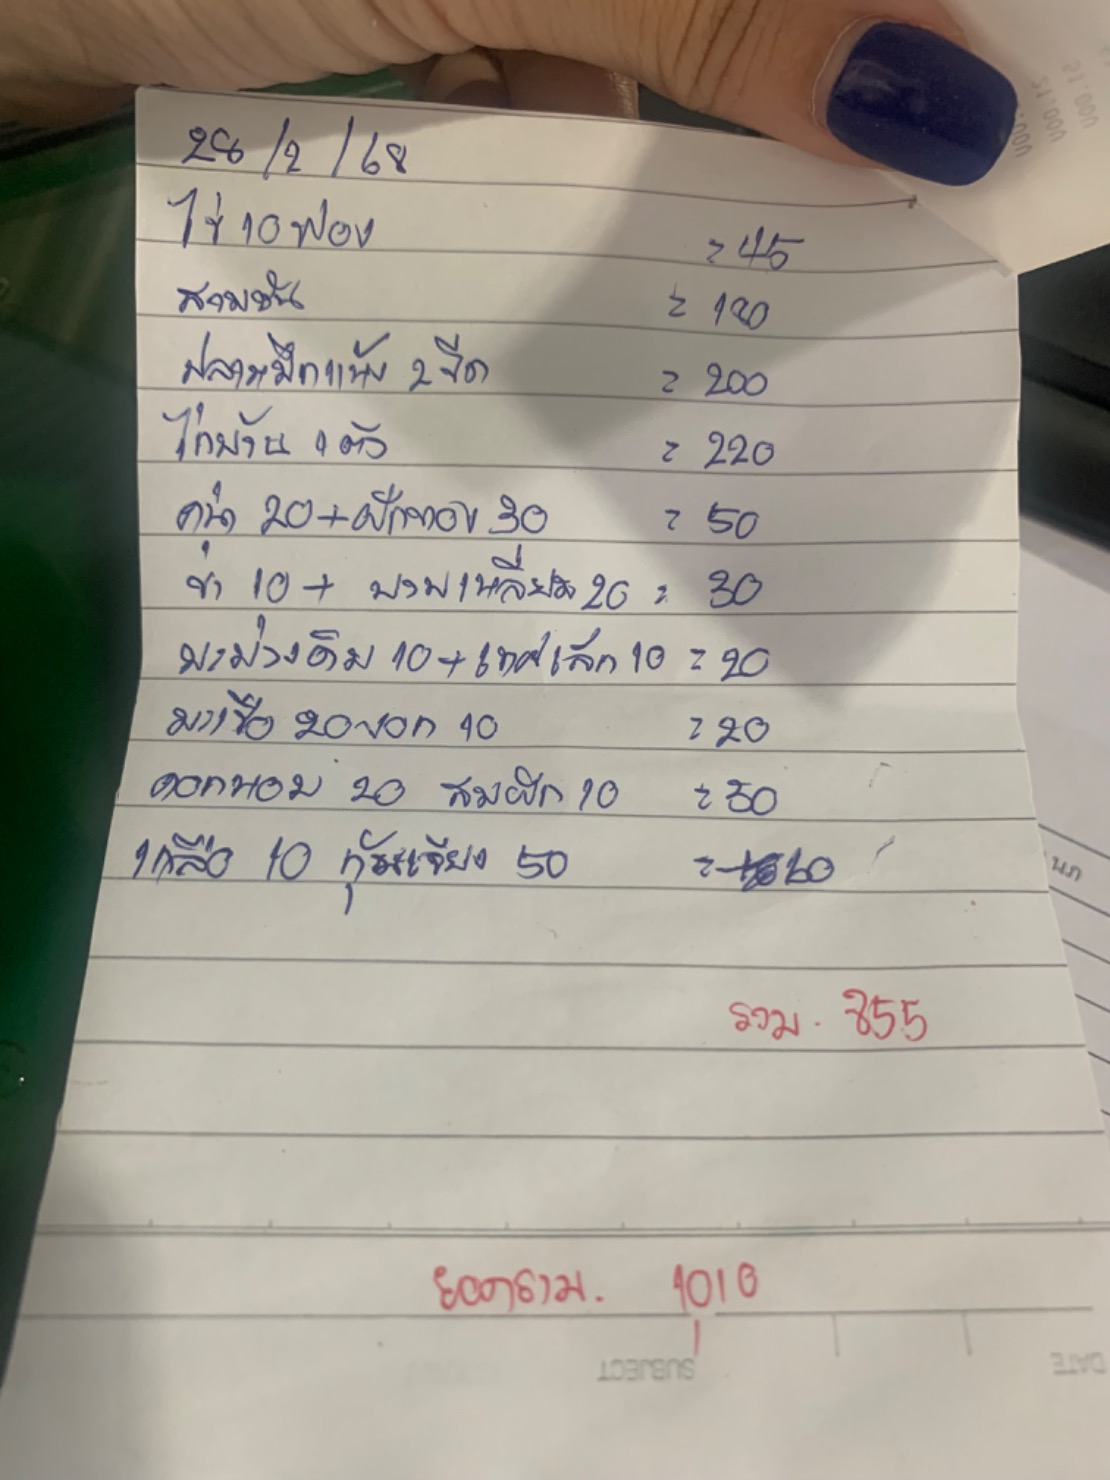 28/2/68
ไข่ 10 ฟอง = 45
สามชั้น = 180
ปลาหมึกแห้ง 2 ขีด = 200
ไก่บ้าน 1 ตัว = 220
คูน 20+ฟักทอง 30 = 50
ข่า 10 + บวบเหลี่ยม 20 = 30
มะม่วงดิบ 10+เทศเล็ก 10 = 20
มะเขือ 20 งอก 10 = 20
ดอกหอม 20 สมผัก 10 = 30
เกลือ 10 กุ้นเจียง 50 = 60
รวม. 855
ยอดรวม. 1010
SUBJECT
DATE